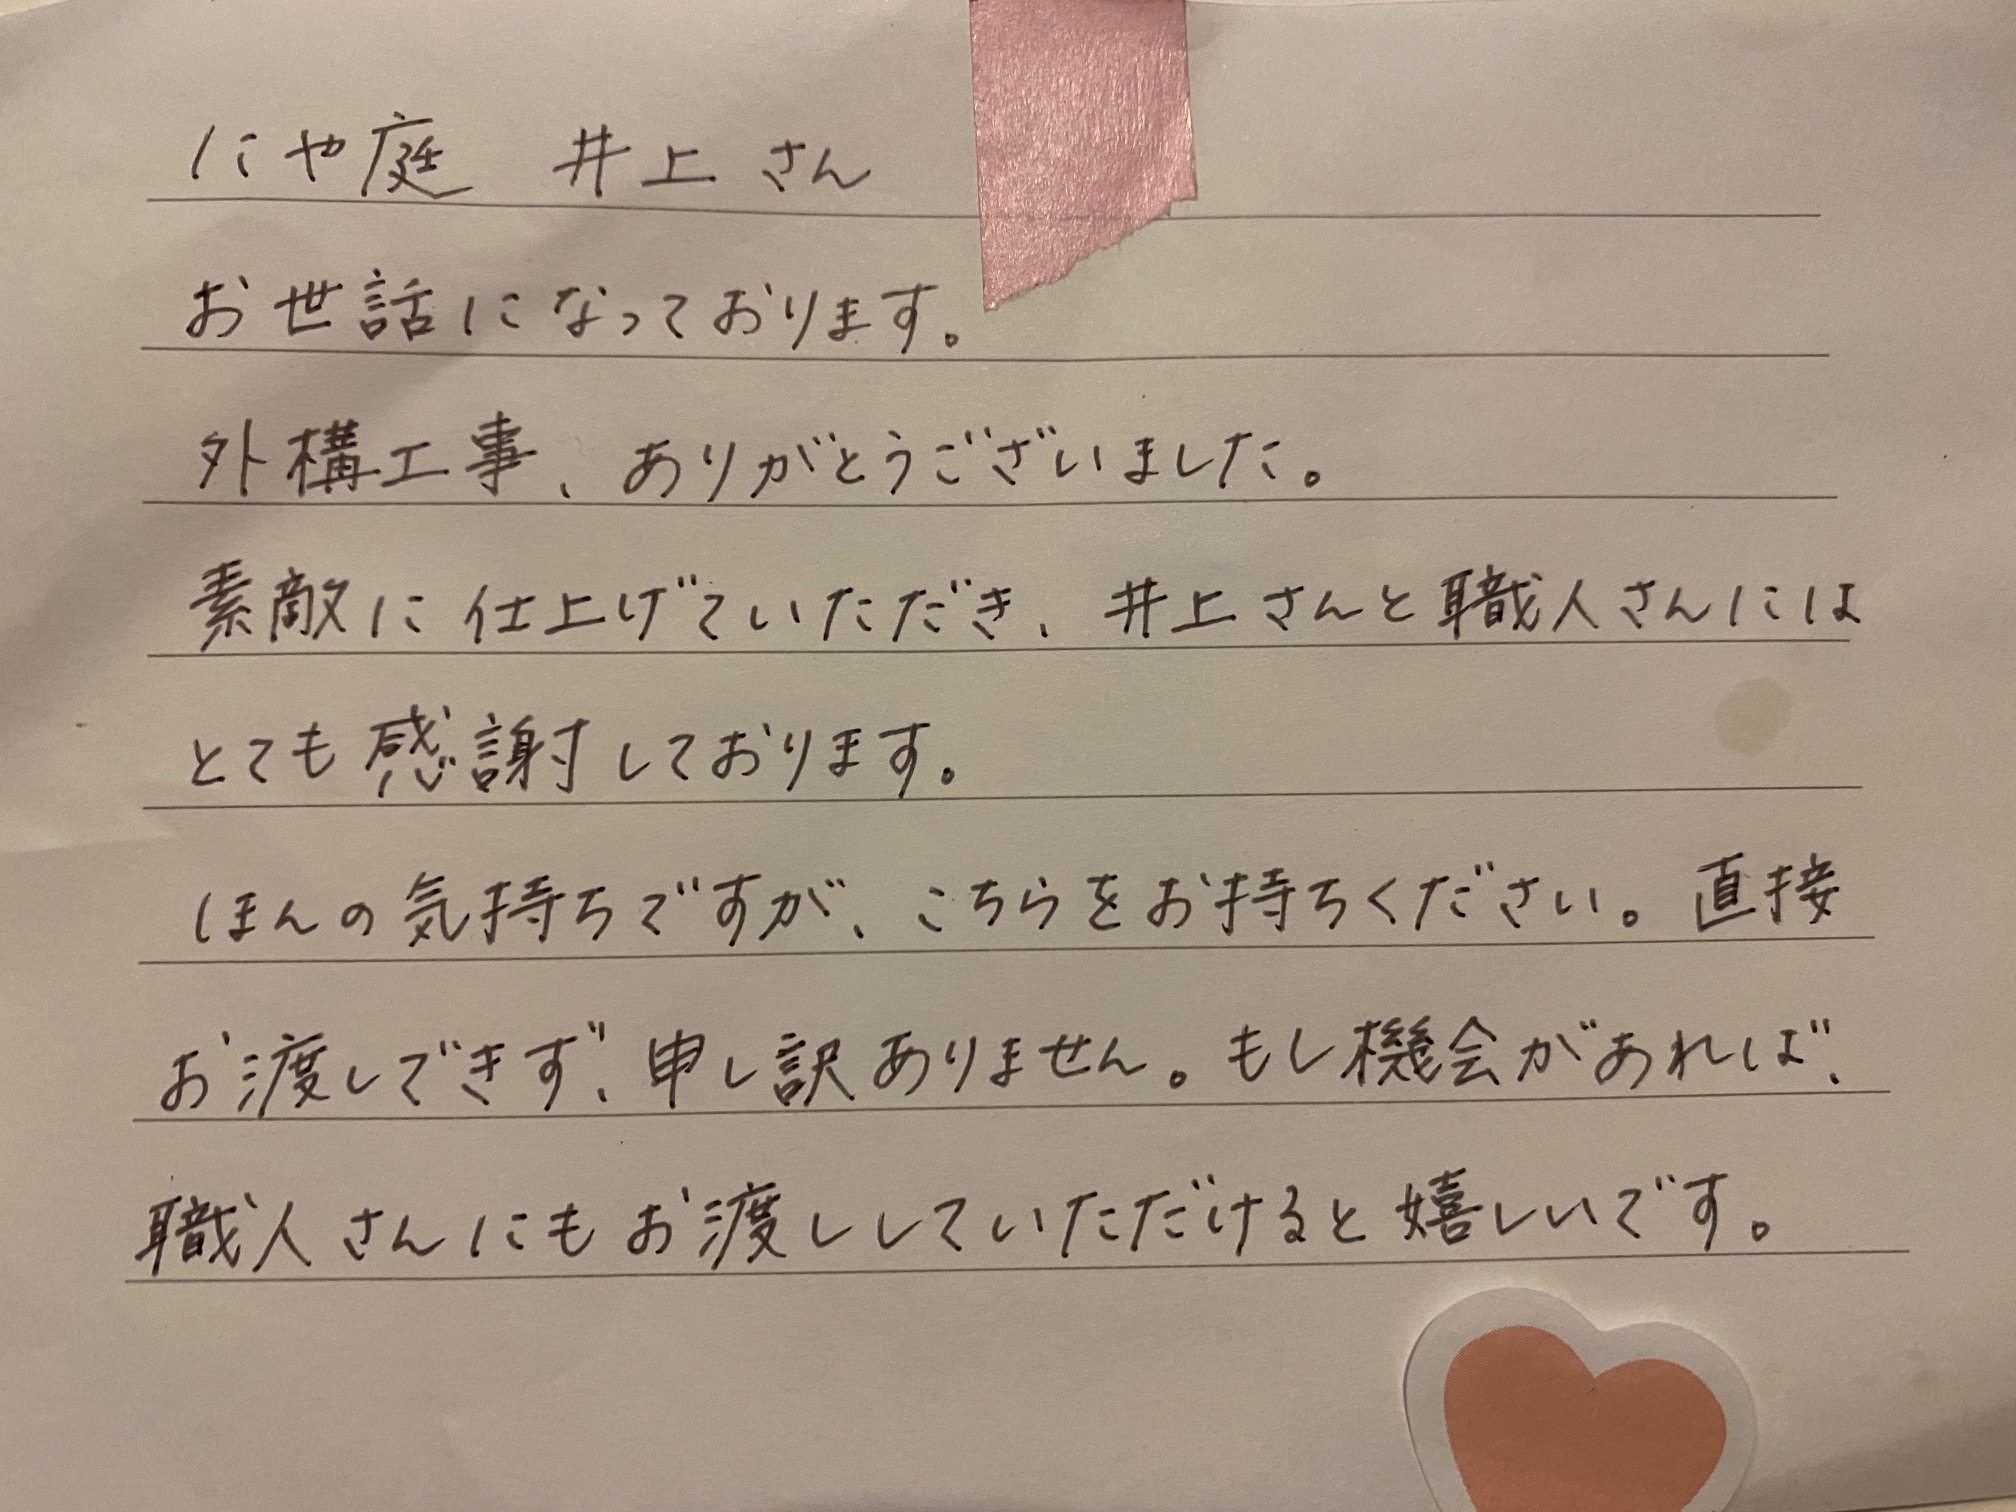 にや庭 井上さん
お世話になっております。
外構工事、ありがとうございました。
素敵に仕上げていただき、井上さんと職人さんには
とても感謝しております。
ほんの気持ちですが、こちらをお持ちください。直接
お渡しできず、申し訳ありません。もし機会があれば、
職人さんにもお渡ししていただけると嬉しいです。